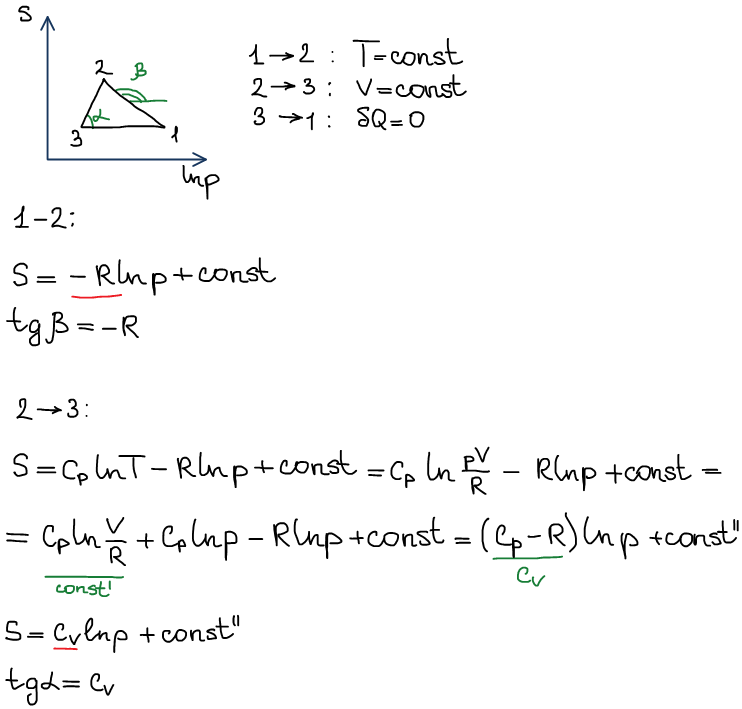 S
2 β
α
3 1
lnp
1→2: T=const
2→3: V=const
3→1: δQ=0
1-2:
S = -Rlnp + const
tgβ = -R
2→3:
S = Cp lnT - Rlnp + const = Cp ln pV/R - Rlnp + const =
= Cp ln V/R + Cp lnp - Rlnp + const = (Cp - R) lnp + const"
const' Cv
S = Cv lnp + const"
tgα = Cv